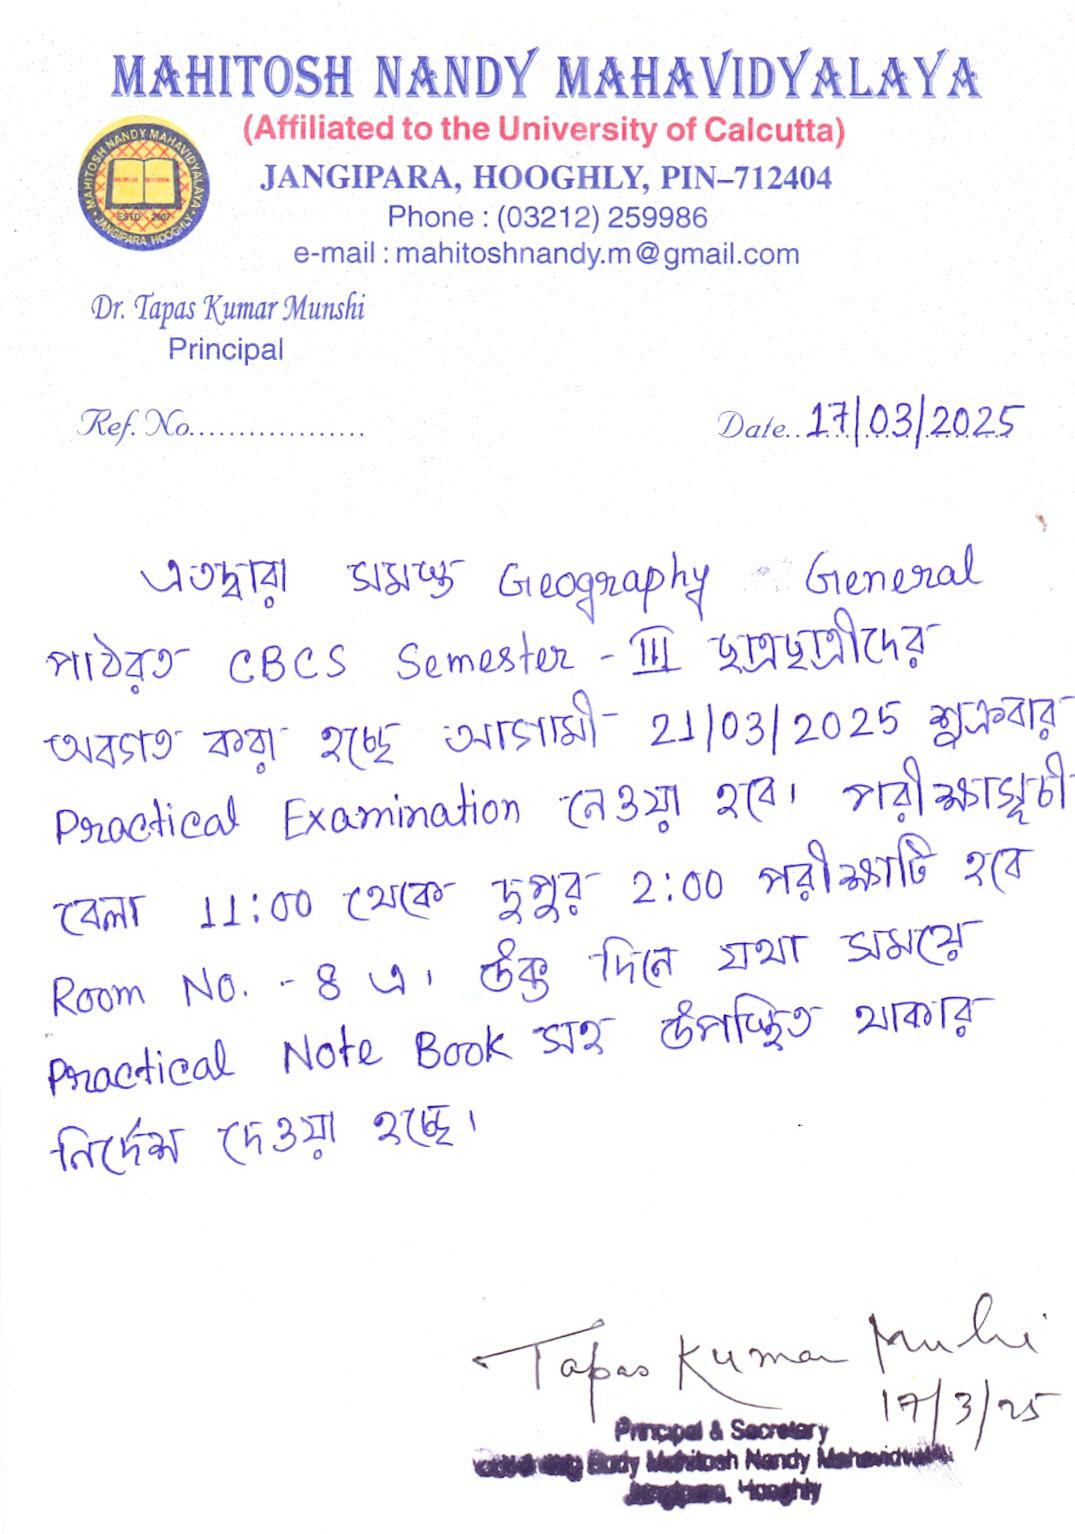 MAHITOSH NANDY MAHAVIDYALAYA
(Affiliated to the University of Calcutta)
JANGIPARA, HOOGHLY, PIN–712404
Phone : (03212) 259986
e-mail : mahitoshnandy.m@gmail.com
MAHITOSH NANDY MAHAVIDYALAYA
ESTD 2007
JANGIPARA, HOOGHLY
Dr. Tapas Kumar Munshi
Principal
Ref. No..................
Date.. 17/03/2025
এতদ্বারা সমস্ত Geography General
পাঠরত CBCS Semester - III ছাত্রছাত্রীদের
অবগত করা হচ্ছে আগামী 21/03/2025 শুক্রবার
Practical Examination নেওয়া হবে। পরীক্ষাসূচী
বেলা 11:00 থেকে দুপুর 2:00 পরীক্ষাটি হবে
Room No. - 8 এ। উক্ত দিনে যথা সময়ে
Practical Note Book সহ উপস্থিত থাকার
নির্দেশ দেওয়া হচ্ছে।
Tapas Kumar Munshi
17/3/25
Principal & Secretary
Body Mahitosh Nandy Mahavidyalaya
Jangipara, Hooghly